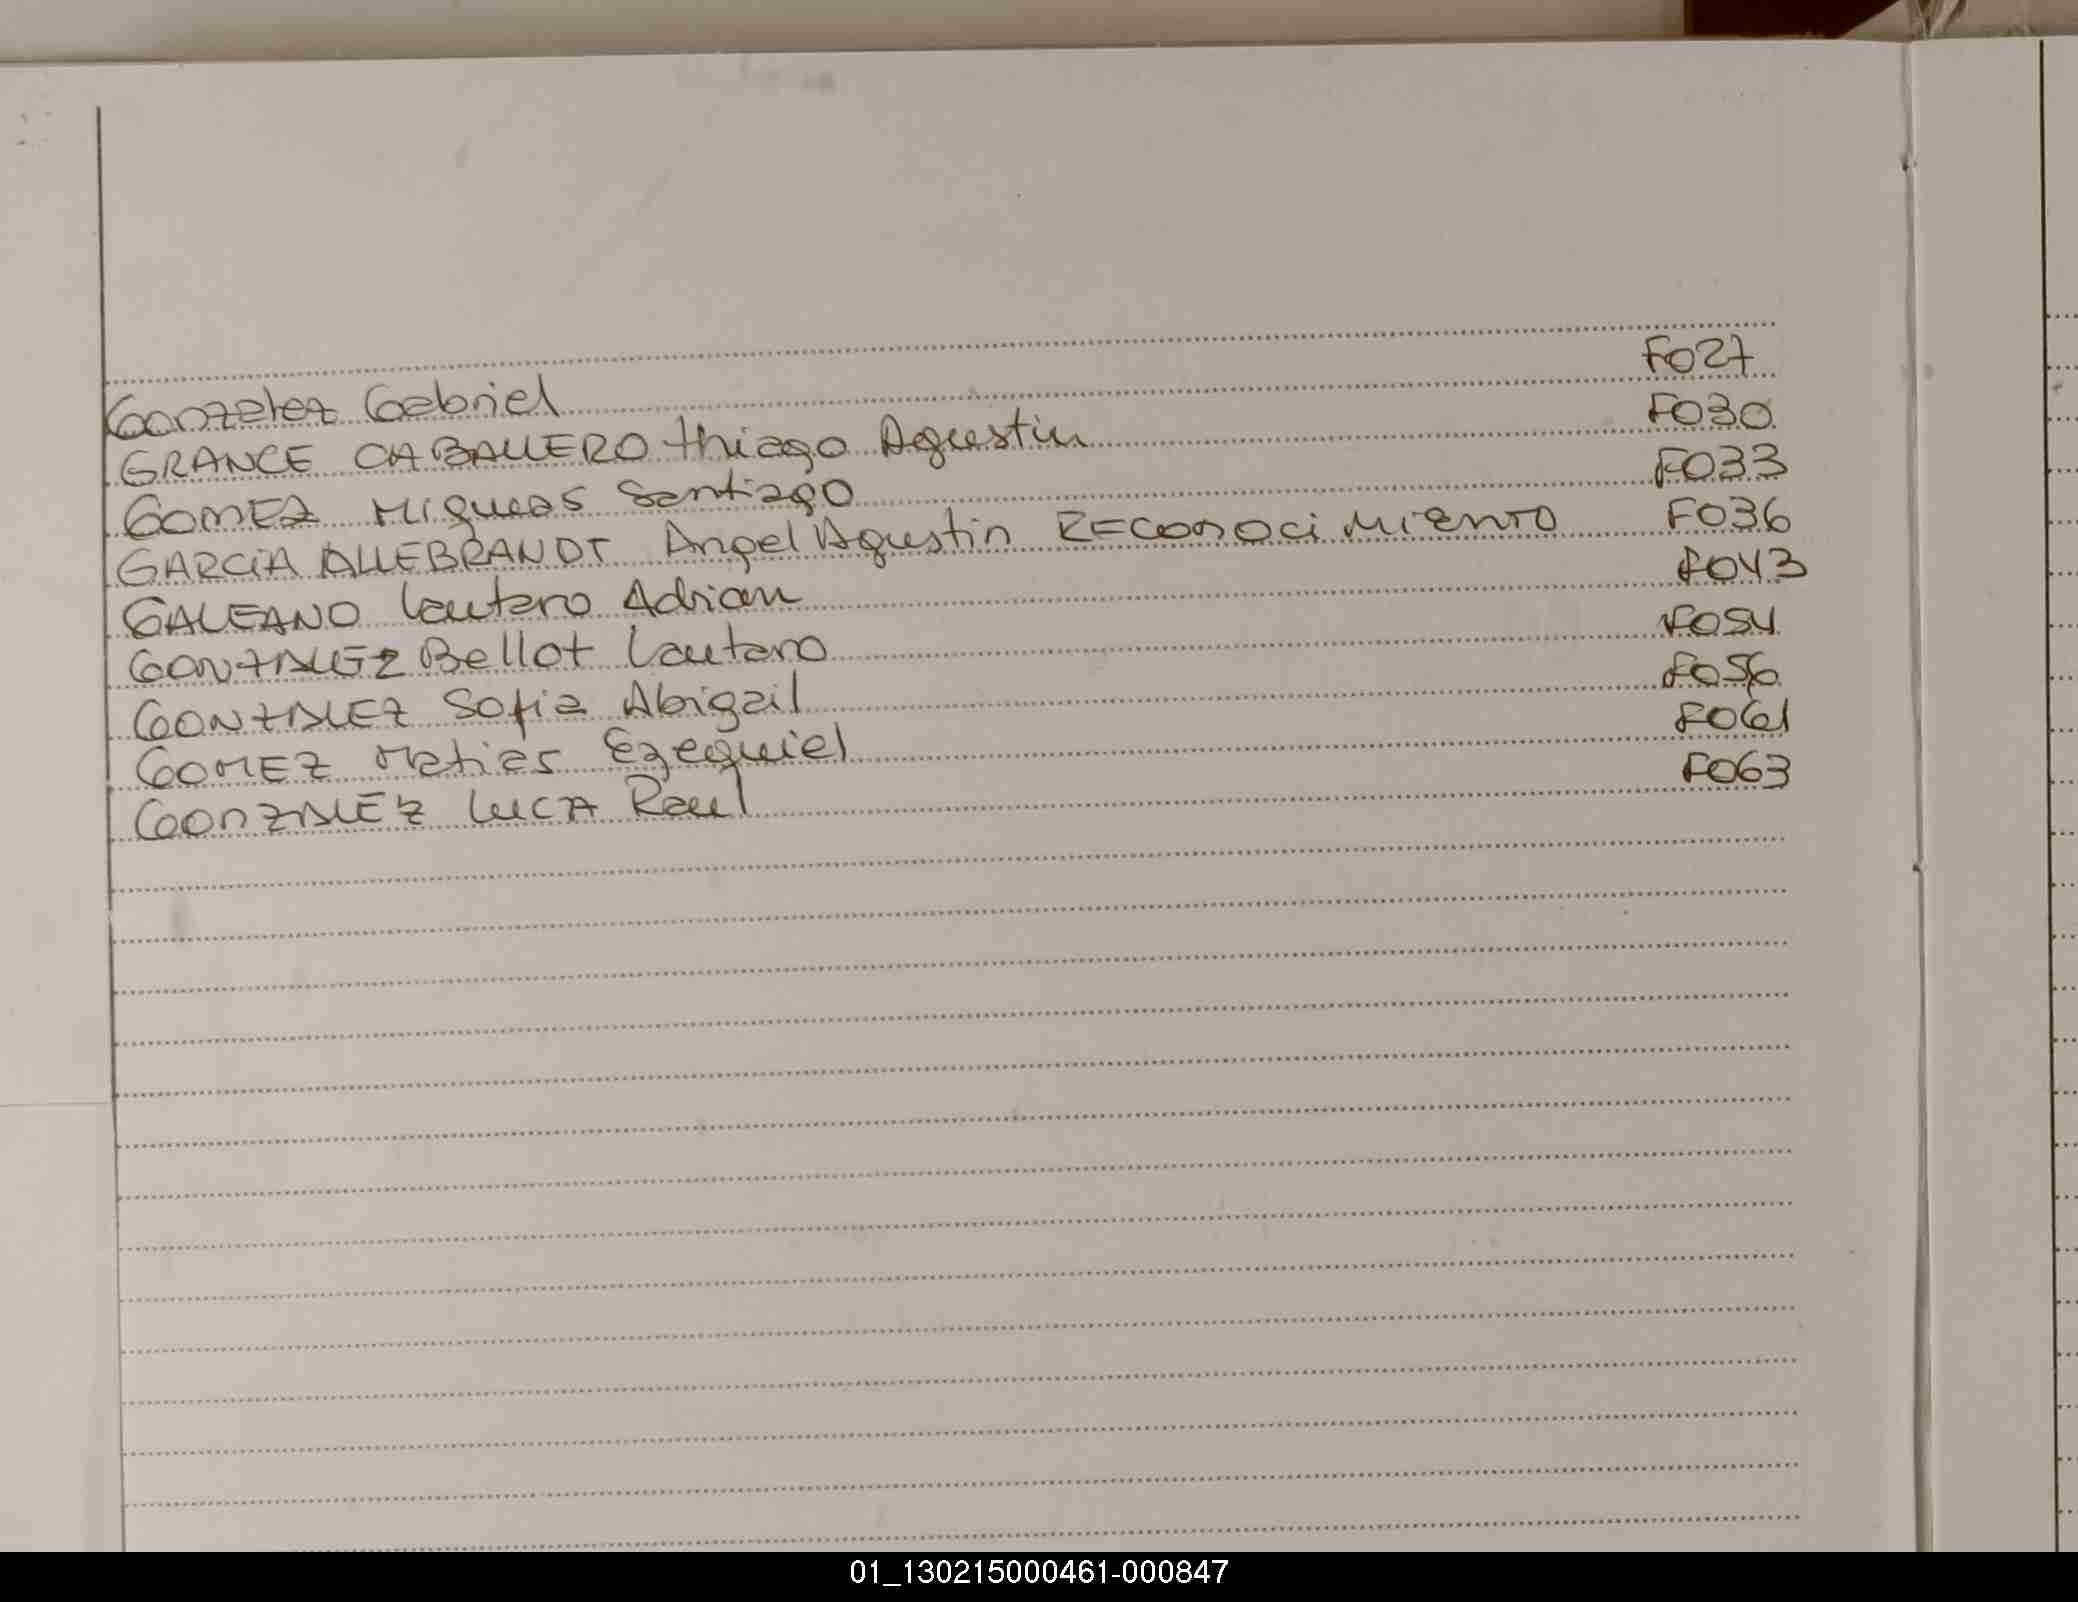 Gonzalez Gabriel F027
GRANCE CABALLERO thiago Agustin F030
GOMEZ Miqueas Santiago F033
GARCIA ALLEBRANDT Angel Agustin RECONOCIMIENTO F036
GALEANO Lautaro Adrian F043
GONZALEZ Bellot Lautaro F054
GONZALEZ Sofia Abigail F056
GOMEZ Matias Ezequiel F061
GONZALEZ LUCA Raul F063
01_130215000461-000847